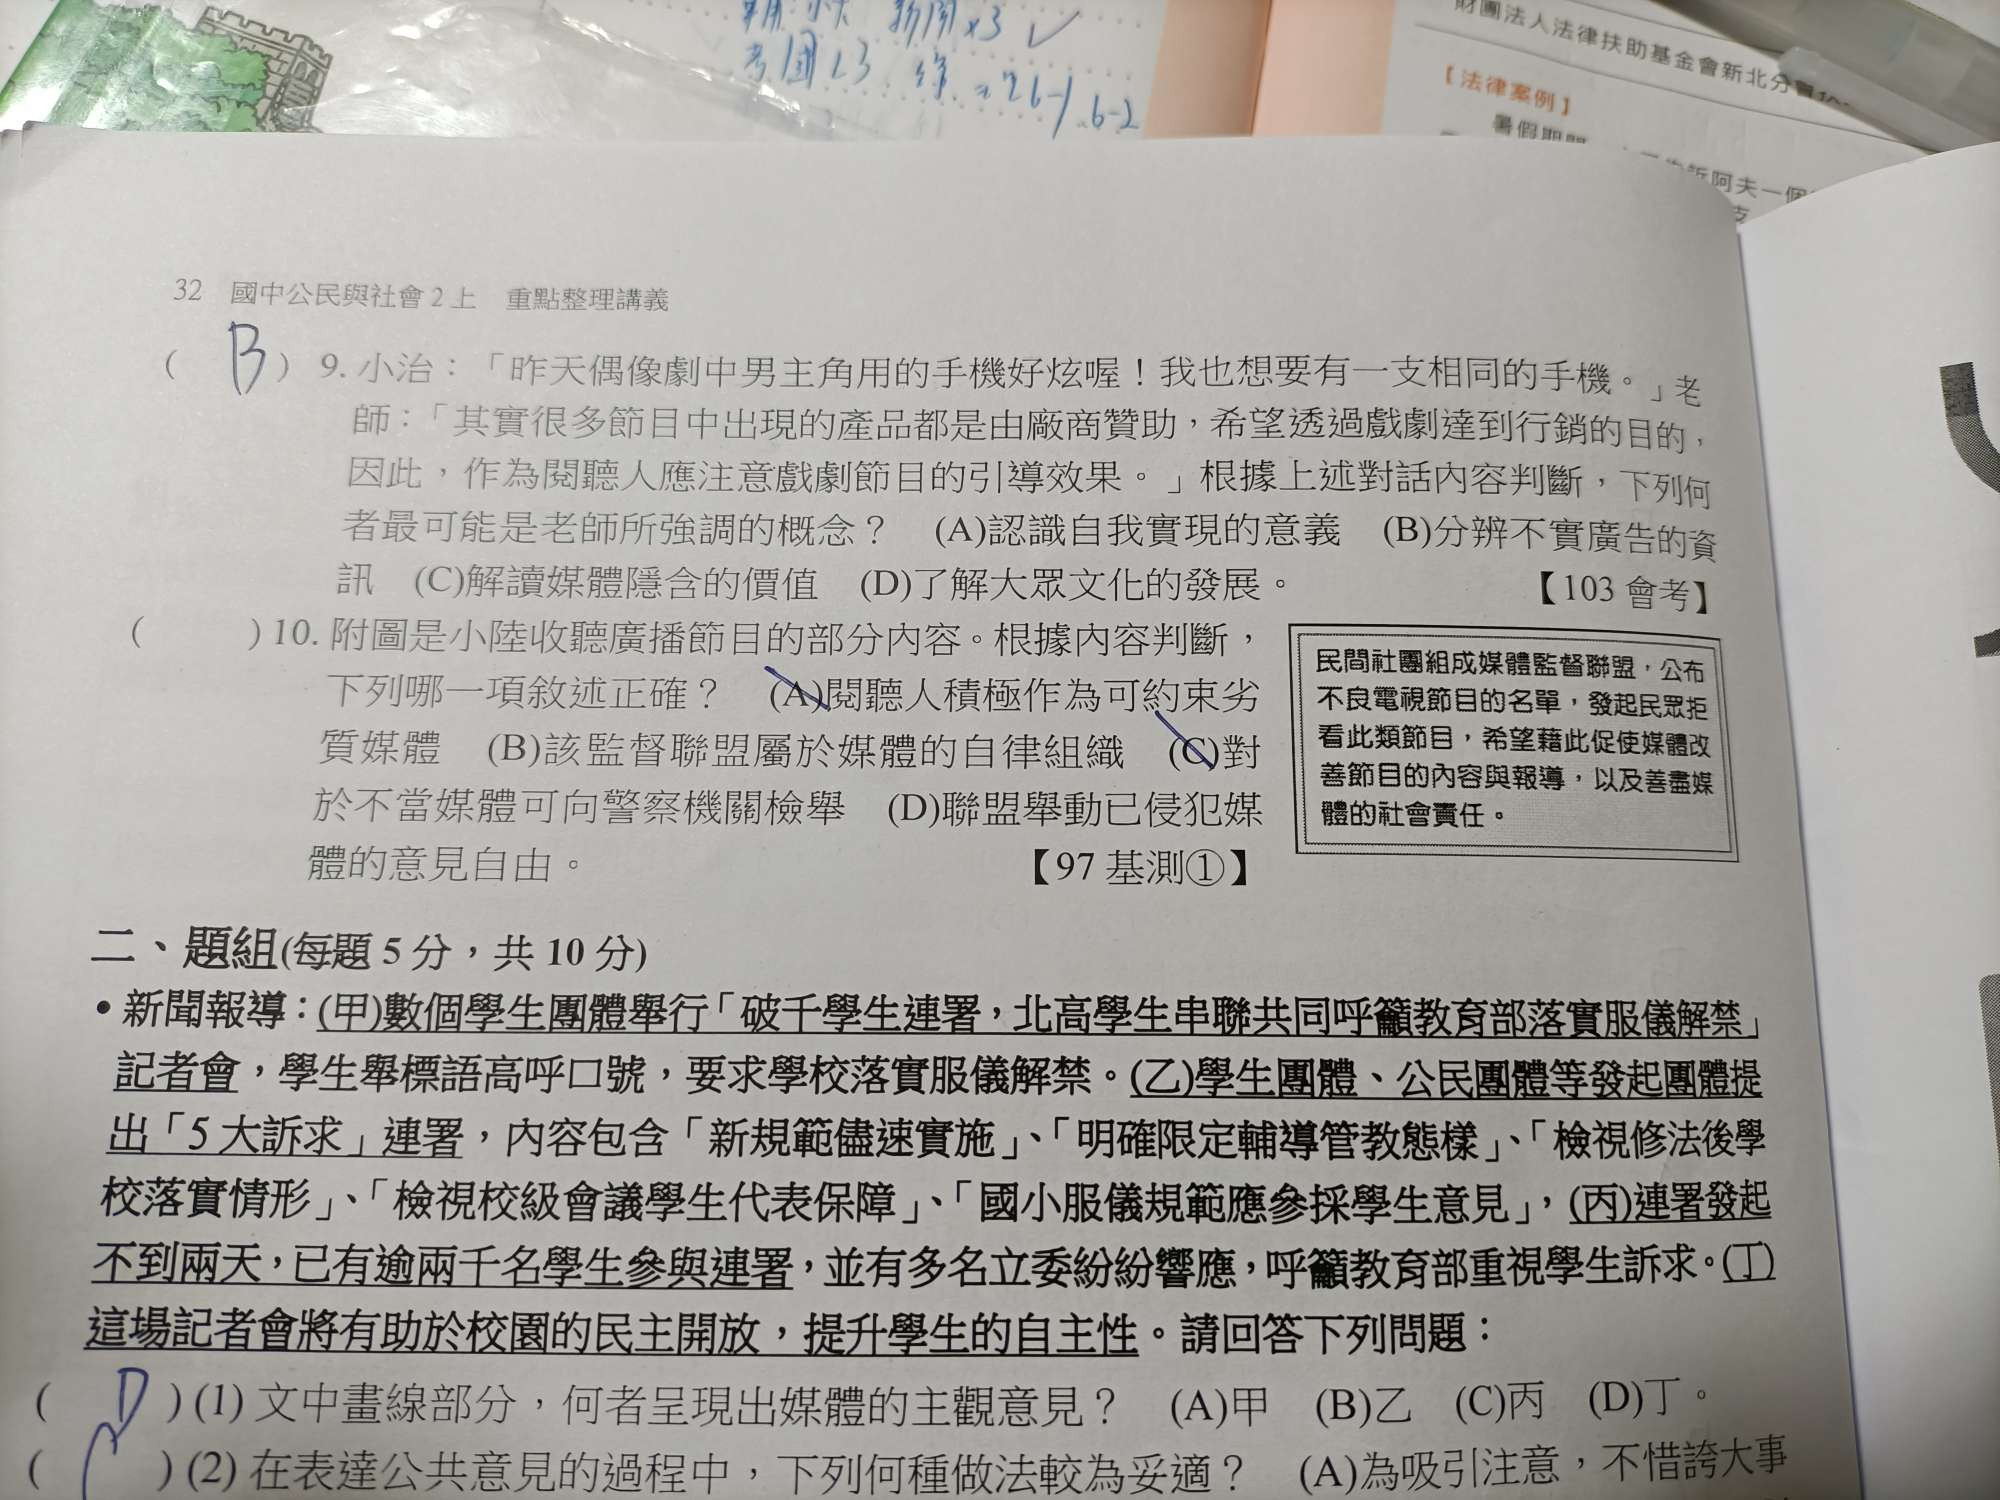 新聞x3 ✓
考國L3
26-1.6-2
財團法人法律扶助基金會新北分會
【法律案例】
暑假期間
訴阿夫一個
支
32 國中公民與社會2上 重點整理講義
( B ) 9. 小治：「昨天偶像劇中男主角用的手機好炫喔！我也想要有一支相同的手機。」老
師：「其實很多節目中出現的產品都是由廠商贊助，希望透過戲劇達到行銷的目的，
因此，作為閱聽人應注意戲劇節目的引導效果。」根據上述對話內容判斷，下列何
者最可能是老師所強調的概念？ (A)認識自我實現的意義 (B)分辨不實廣告的資
訊 (C)解讀媒體隱含的價值 (D)了解大眾文化的發展。 【103 會考】
( ) 10. 附圖是小陸收聽廣播節目的部分內容。根據內容判斷，
下列哪一項敘述正確？ (A)閱聽人積極作為可約束劣
質媒體 (B)該監督聯盟屬於媒體的自律組織 (C)對
於不當媒體可向警察機關檢舉 (D)聯盟舉動已侵犯媒
體的意見自由。 【97 基測①】
民間社團組成媒體監督聯盟，公布
不良電視節目的名單，發起民眾拒
看此類節目，希望藉此促使媒體改
善節目的內容與報導，以及善盡媒
體的社會責任。
二、題組(每題 5 分，共 10 分)
•新聞報導：(甲)數個學生團體舉行「破千學生連署，北高學生串聯共同呼籲教育部落實服儀解禁」
記者會，學生舉標語高呼口號，要求學校落實服儀解禁。(乙)學生團體、公民團體等發起團體提
出「5 大訴求」連署，內容包含「新規範儘速實施」、「明確限定輔導管教態樣」、「檢視修法後學
校落實情形」、「檢視校級會議學生代表保障」、「國小服儀規範應參採學生意見」，(丙)連署發起
不到兩天，已有逾兩千名學生參與連署，並有多名立委紛紛響應，呼籲教育部重視學生訴求。(丁)
這場記者會將有助於校園的民主開放，提升學生的自主性。請回答下列問題：
( D ) (1) 文中畫線部分，何者呈現出媒體的主觀意見？ (A)甲 (B)乙 (C)丙 (D)丁。
( ) (2) 在表達公共意見的過程中，下列何種做法較為妥適？ (A)為吸引注意，不惜誇大事